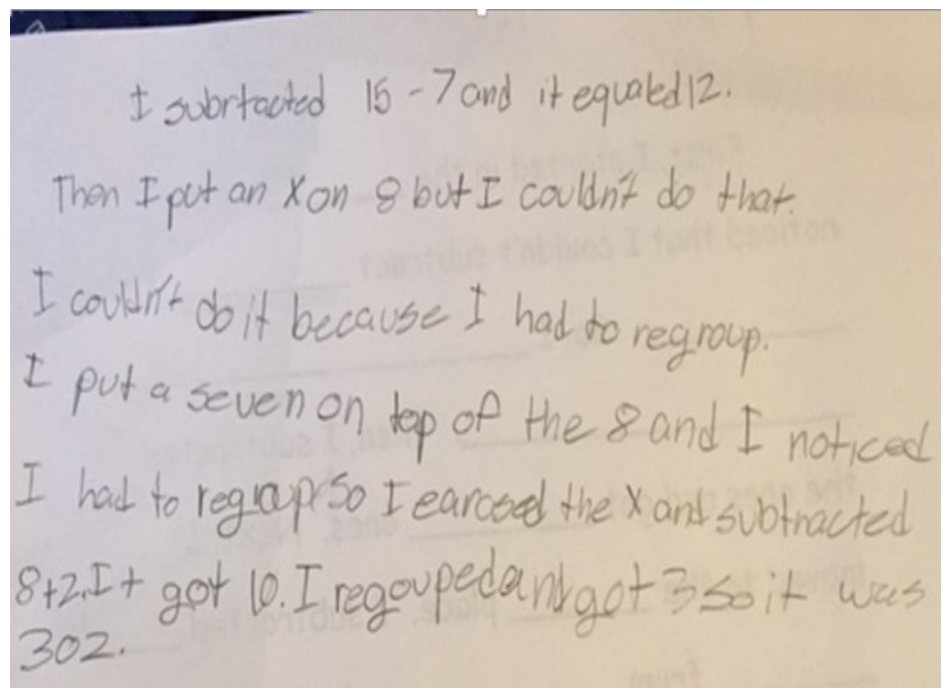 I subrtacted 15-7 and it equaled 12.
Then I put an X on 8 but I couldn't do that.
I couldn't do it because I had to regroup.
I put a seven on top of the 8 and I noticed
I had to regroup so I earcsed the X and subtracted
8+2. It got 10. I regouped and got 3 so it was
302.